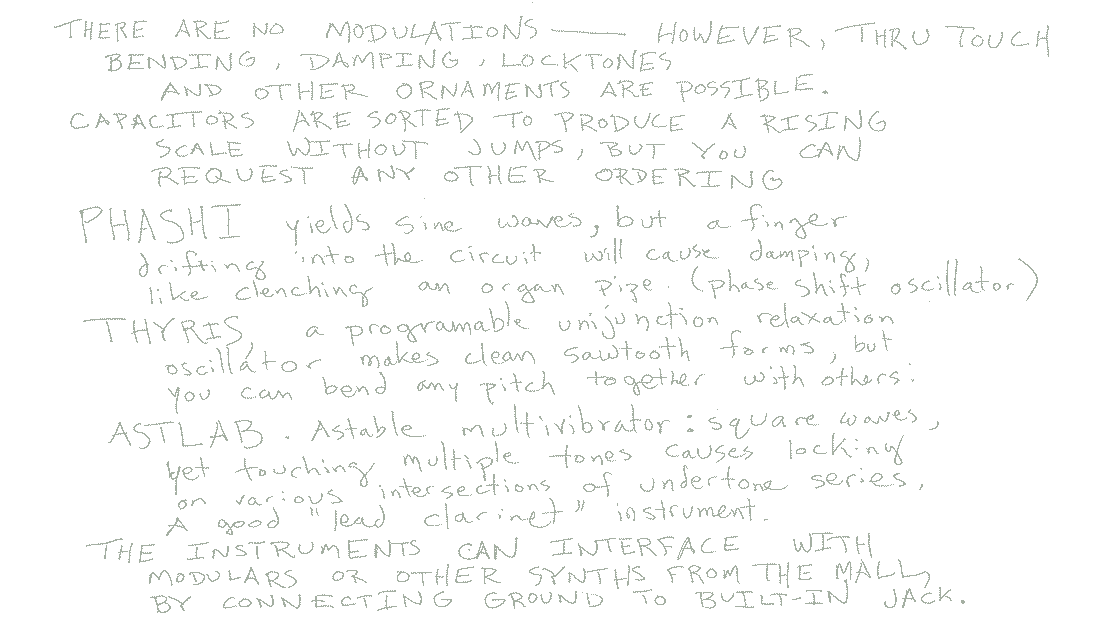 THERE ARE NO MODULATIONS —— HOWEVER, THRU TOUCH
BENDING, DAMPING, LOCKTONES
AND OTHER ORNAMENTS ARE POSSIBLE.
CAPACITORS ARE SORTED TO PRODUCE A RISING
SCALE WITHOUT JUMPS, BUT YOU CAN
REQUEST ANY OTHER ORDERING
PHASHI yields sine waves, but a finger
drifting into the circuit will cause damping,
like clenching an organ pipe. (phase shift oscillator)
THYRIS, a programable unijunction relaxation
oscillator makes clean sawtooth forms, but
you can bend any pitch together with others.
ASTLAB. Astable multivibrator: square waves,
yet touching multiple tones causes locking
on various intersections of undertone series,
A good "lead clarinet" instrument.
THE INSTRUMENTS CAN INTERFACE WITH
MODULARS OR OTHER SYNTHS FROM THE MALL,
BY CONNECTING GROUND TO BUILT-IN JACK.